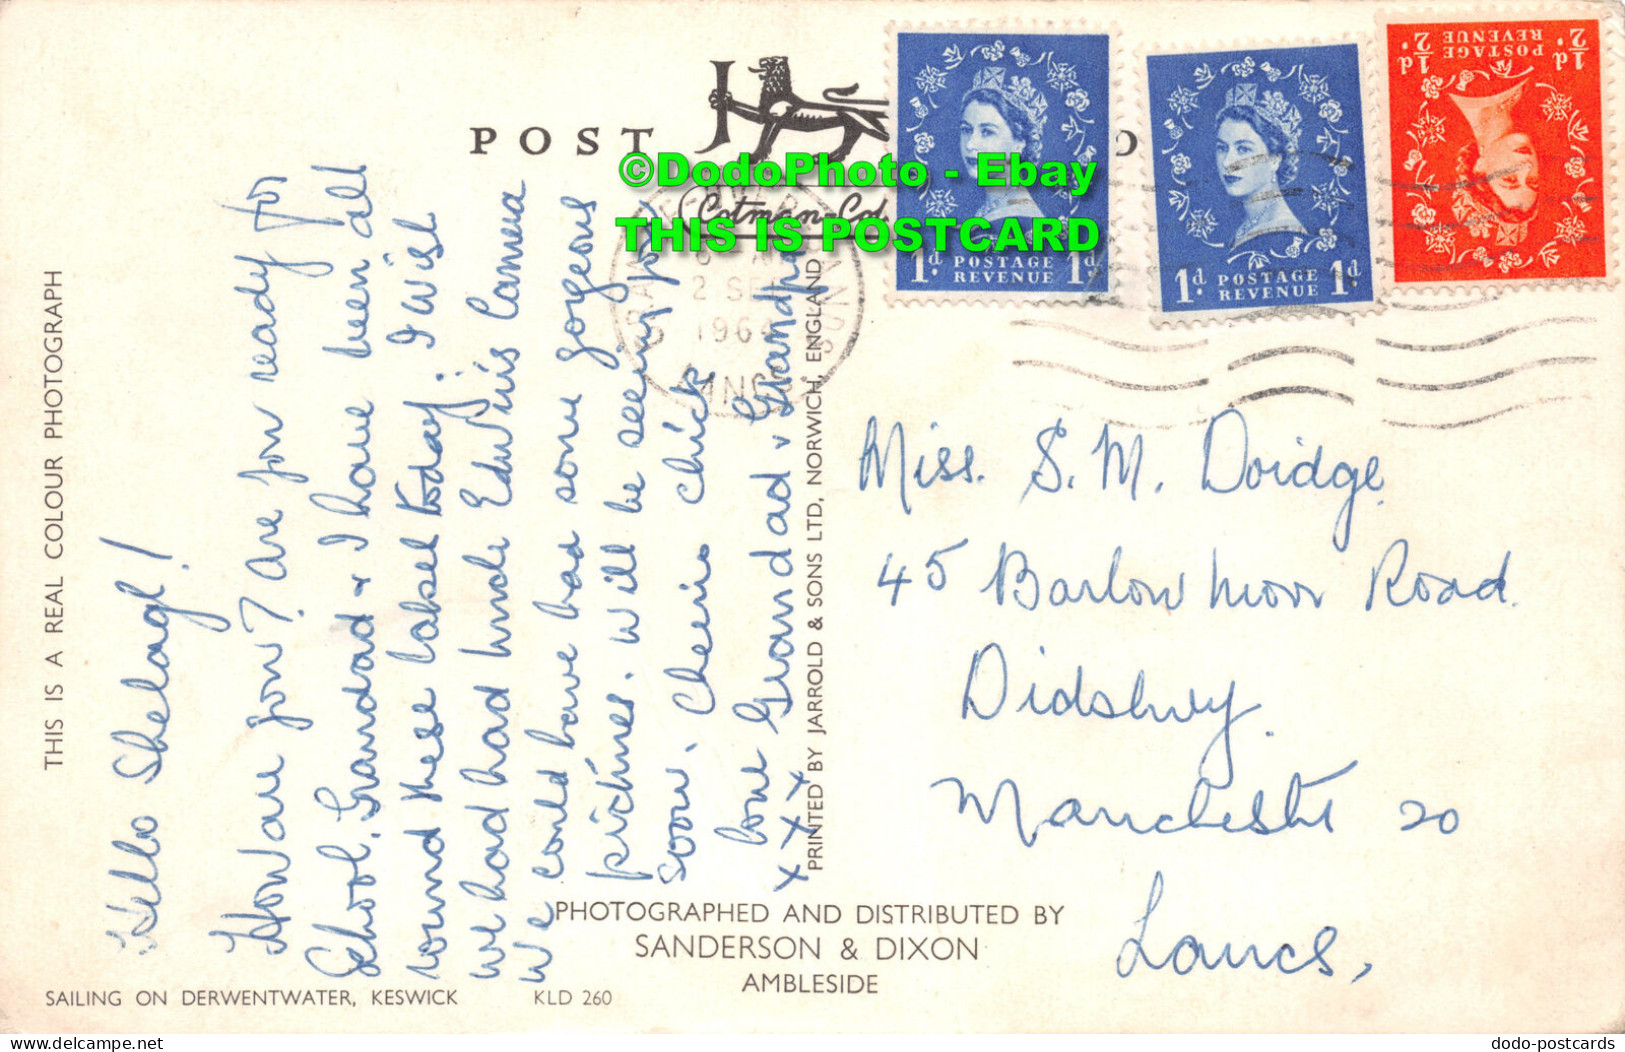 POST
J
Cotman-Col
©DodoPhoto - Ebay
THIS IS POSTCARD
1d POSTAGE REVENUE 1d
1d POSTAGE REVENUE 1d
½d POSTAGE REVENUE ½d
2 SE
1964
LANCS
THIS IS A REAL COLOUR PHOTOGRAPH
Hello Shelagh!
How are you? Are you ready for
School. Grandad & I have been all
round these lakes today. I wish
we had had Uncle Edwin's Camera
We could have had some gorgeous
pictures. Will be seeing you
soon. Cheerio chick
love Grandad & Grandma
xxx
PRINTED BY JARROLD & SONS LTD, NORWICH, ENGLAND
Miss. S. M. Doidge
45 Barlow Moor Road.
Didsbury.
Manchester 20
Lancs,
PHOTOGRAPHED AND DISTRIBUTED BY
SANDERSON & DIXON
AMBLESIDE
SAILING ON DERWENTWATER, KESWICK KLD 260
dodo-postcards